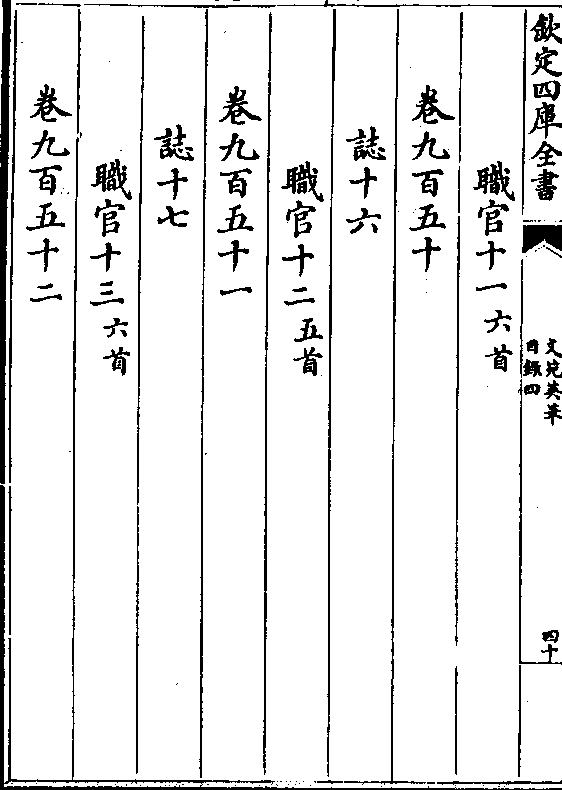 欽定四庫全書
文苑英華
目錄四
四十
職官十一六首
卷九百五十
誌十六
職官十二五首
卷九百五十一
誌十七
職官十三六首
卷九百五十二